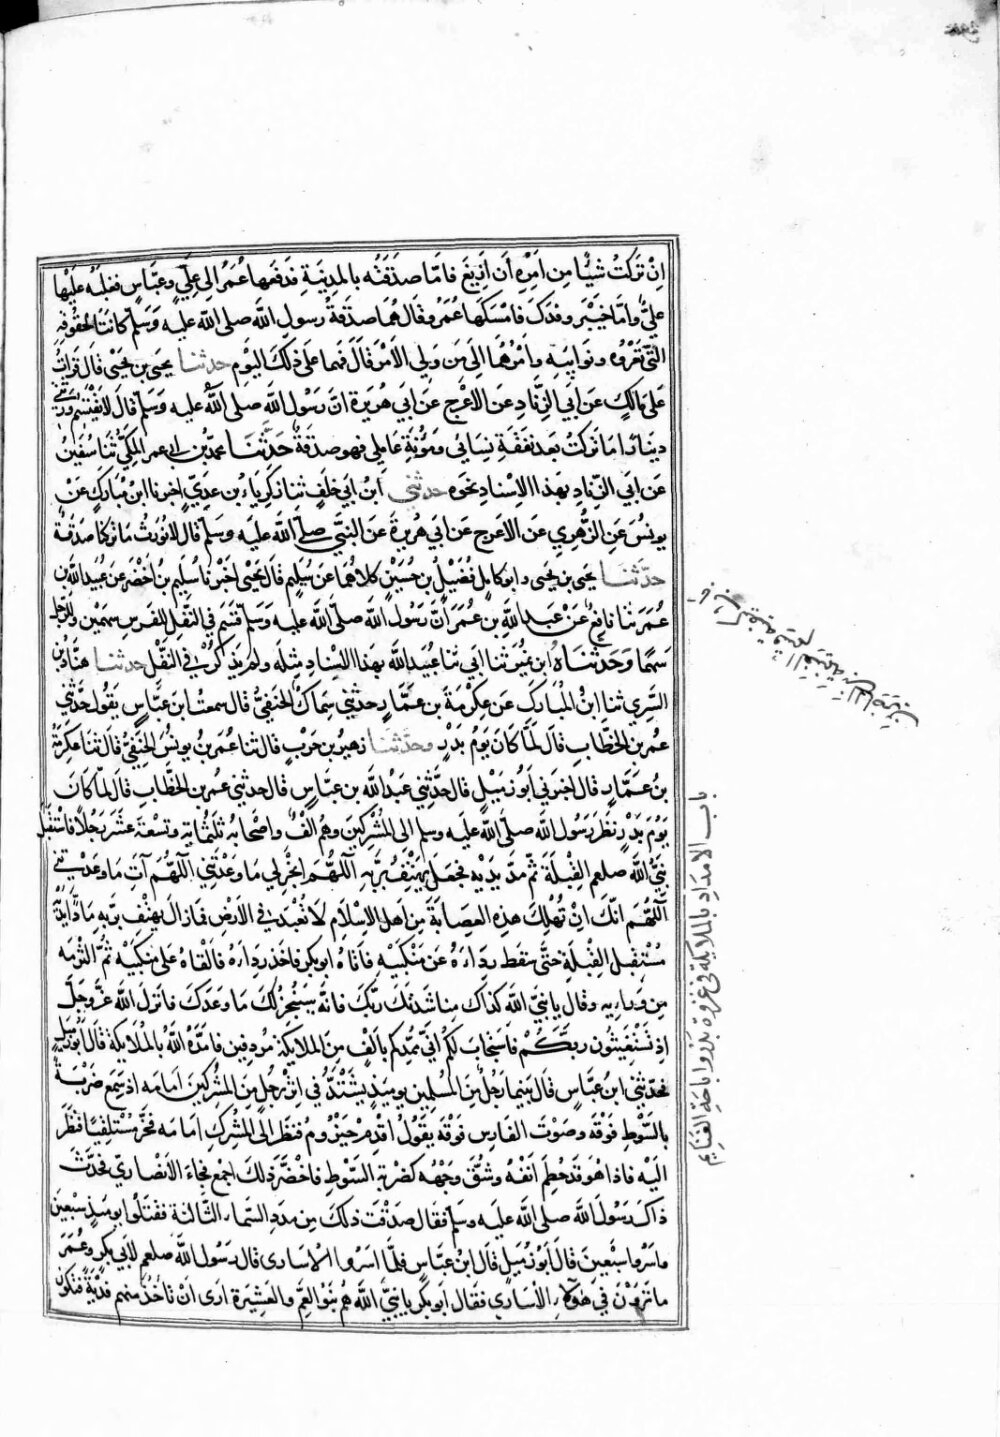 اِنْ تركتُ شيئًا مِن اَمرِه اَن اَزيغَ فامّا صدقَتُه بالمدِينةِ فدَفعها عُمَرُ الى عليٍّ وعبَّاسٍ فغلبَه عليها
عليُّ وامَّا خَيْبَر وفدَك فامسَكها عُمرُ وقال هُما صدَقةُ رسولِ اللهِ صلى الله عليه وَسلّم كانتا لحقُوقِه
التّى تَعْرُوه ونوايبِه وامرُهُما الى مَن وَلِى الاَمْر قالَ فهما على ذلك اليَوْم حدثنا يحيى بن يحيى قال قراتُ
على مالكٍ عن ابي الزّنادِ عن الاَعرج عَن ابي هُريرة انّ رَسُول الله صلى الله عليه وسلّم قال لا يَقْتسم ورثتي
دِينارًا مَا تركتُ بعد نفقَةِ نِسَائى ومؤُنةِ عَامِلى فهو صدقةٌ حَدّثنا محمدُ بن ابى عمر المكيُّ ثنا سُفين
عَن ابي الزّنادِ بهذا الاِسْنادِ نحوَه حدثني ابن ابي خلفٍ ثنا زكَرِيَّاء بن عديٍّ اخبرنا ابن مُبَارَكٍ عَنْ
يونسَ عَن الزُّهري عَن الاعرج عَن ابي هريرةَ عَن النبيّ صلى الله عليه وسلّم قال لا نُورثُ مَا تركنا صدقةٌ
حدّثنا يحيى بن يحيى وابو كامِل فُضيْل بن حُسَيْنٍ كلاهُما عَن سُلَيمٍ قال يَحيى اخبرنا سُليم بن اَخْضَر عَن عُبيد الله بن
عُمَر ثنا نافِعٌ عَنْ عبد اللّهِ بن عُمَرَ اَنَّ رَسُولَ الله صَلى الله عليه وَسَلم قَسَم في النَّفَلِ للفَرسِ سهمَين وللرّجلِ
سَهمًا وَحَدَّثَنَاهُ ابن نُمَيرٍ ثنا ابي ثنا عُبيد الله بهذا الاسنادِ مثلَه ولم يَذكرْ في النّفلِ حدثنا هنّادُ بن
السَّرِي ثنا ابنُ المُبارَك عَن عِكْرمَة بن عمَّارٍ حدثني سِماكٌ الحنفِيُّ قال سمعتُ ابن عبّاسٍ يقُول حدّثني
عمر بن الخطّاب قال لمّا كانَ يَومُ بَدْرٍ وحدّثنا زهير بن حَربٍ قال ثنا عُمَر بن يونسَ الحنَفيُّ قال ثنا عكرمةُ
بنُ عَمّارٍ قال اخبرني ابُو زُمَيْلٍ قال حدَّثني عبْدُ اللّه بن عبَّاسٍ قال حدثني عمر بن الخطّابِ قال لمّا كَان
يَوْمُ بَدْرٍ نظَر رَسُول اللّه صلى الله عليه وسلم الى المُشرِكينَ وهُم اَلْفٌ واصْحابُه ثلثُمايةٍ وتِسْعَةَ عشَر رَجُلاً فاسْتقبل
نبيُّ الله صلعم القِبلَةَ ثمّ مدّ يدَيه فجعل يَهتِف بربّه اَللّهُمّ انجزْ لى مَا وعَدْتَنى اَللّهُمّ آتِ مَا وعَدْتَني
اَللّهُمّ انّكَ اِنْ تُهلِك هذِه العِصَابةَ مِن اَهل الاِسْلامِ لا تُعْبَدْ في الاَرضِ فمازالَ يهتِف برَبّه مَادًّا يدَيْه
مُسْتقبِل القِبْلةِ حتى سقط رِدَاءَهُ عَن مَنكبَيْه فاتاهُ ابو بكرٍ فاخَذ رِداءَه فالقاهُ على مَنكبَيْه ثمّ التزمَه
مِن وَراءِه وقال يا نبيَّ الله كذاك مناشدتُكَ ربّك فانّه سيُنجِزُ لكَ مَا وَعَدَك فانزل اللهُ عزّ وجلّ
اِذ تسْتغِيثُونَ ربَّكُم فاسْتجَاب لكُم اَنّي مُمِدُّكم بالفٍ مِنَ الملايِكة مُردِفِين فامدَّهُ اللّهُ بالمَلايِكةِ قال ابُو زُمَيلٍ
فحَدّثني ابن عبَّاسٍ قال بَينما رَجُلٌ مِنَ المُسلِمينَ يومَئذٍ يَشْتدُّ في اِثْرِ رَجُلٍ مِن المُشرِكينَ اَمامَه اذ سَمِع ضَربَةً
بالسَّوْطِ فوقَه وصَوْتَ الفارِس فوْقَه يقولُ اَقدِم حَيْزُوم فنظَر الى المُشركِ اَمامَه فخَرَّ مُسْتلقِيًا فنَظَر
اليْه فاذا هُوَ قد خُطِمَ اَنفُه وشُقّ وَجْهُه كضَربَةِ السَّوْطِ فاخْضرّ ذلك اجمع فجاءَ الاَنصاريّ فحدّثَ
ذاك رَسُولَ اللّه صلى الله عليه وسلّم فقال صَدَقْت ذلك مِن مددِ السّماءِ الثّالثةِ فقَتلُوا يومئذٍ سبْعينَ
واَسَرُوا سبْعِينَ قال ابُو زُمَيلٍ قال ابنُ عبّاسٍ فلمّا اسَرُوا الاُسَارى قال رسُول اللهِ صلعم لاَبي بكرٍ وعُمَر
ما ترَوْنَ في هؤلاءِ الاُسَارى فقال ابو بكرٍ يا نبيّ الله هُم بَنُو العَمِّ والعَشيرَة ارى اَنْ تاخُذَ منهم فِديةً فتكون
باب الامدَاد بالملايكة في غزوة بَدْر واباحَةِ الغنَايم